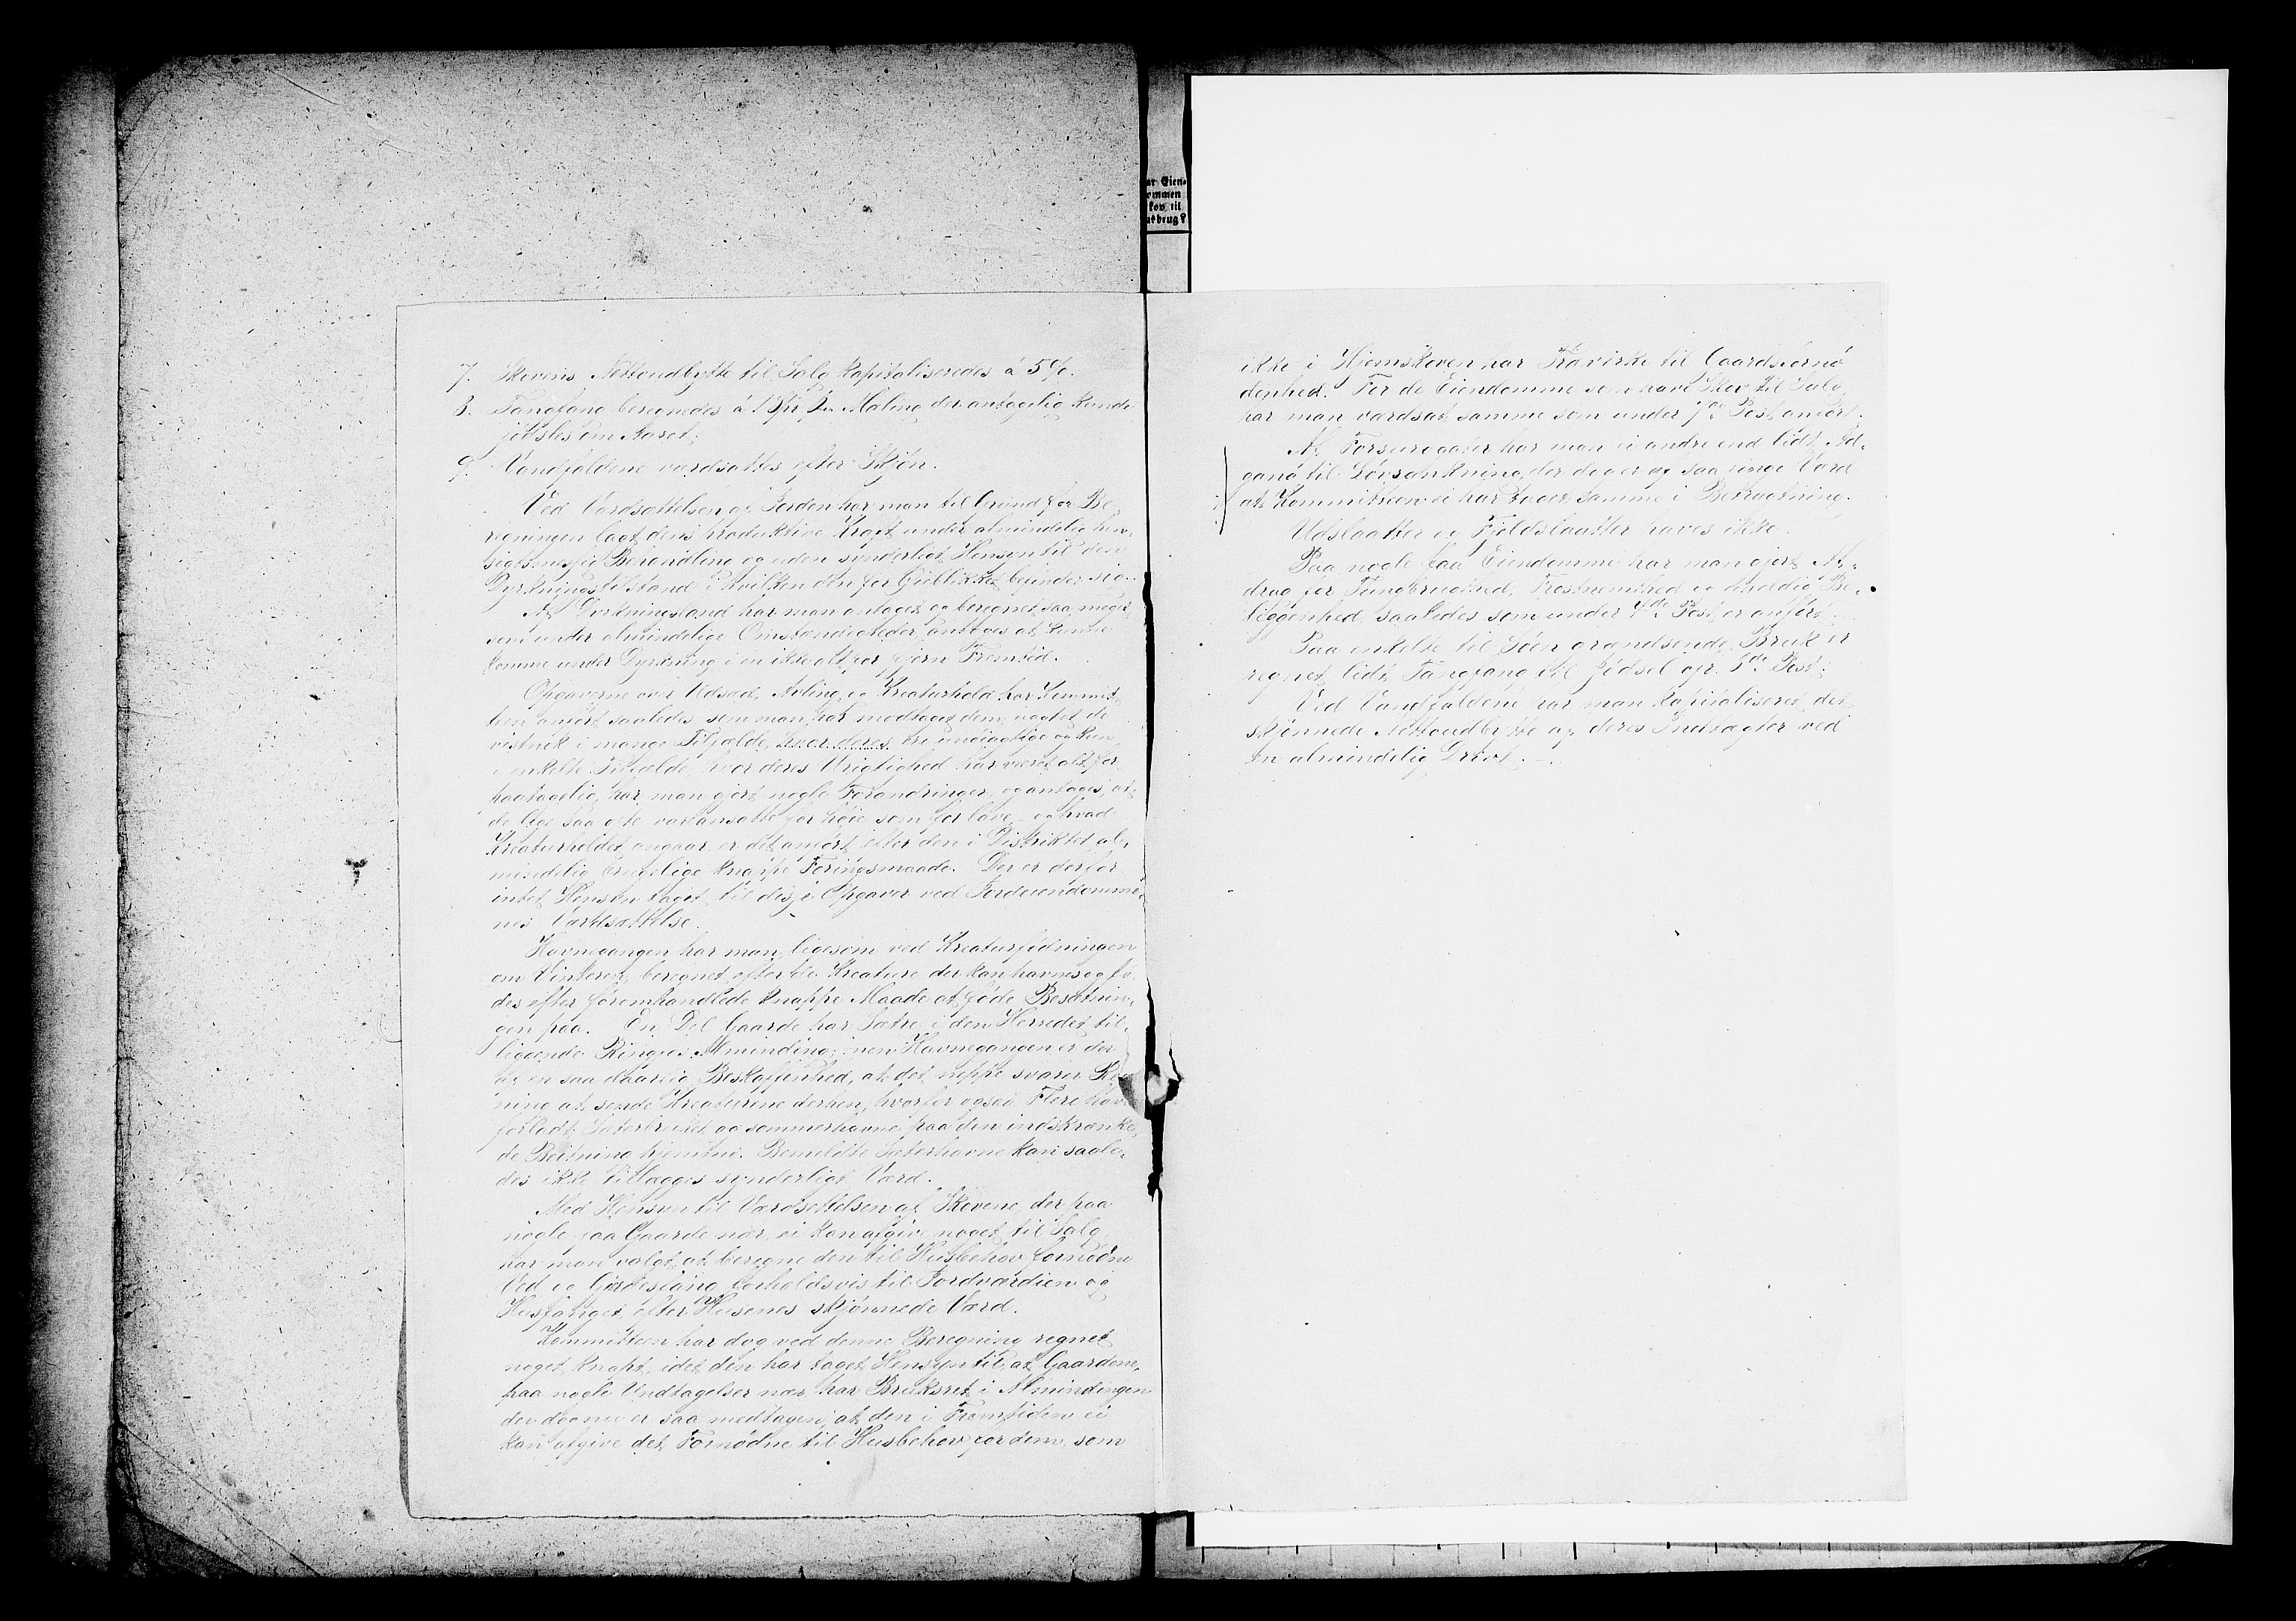 7. Skovens Nettoudbytte til Salg kapitaliseredes á 5 %.
8. Tangfang beregnedes á 1 pr Maling der antagelig kunde
jødsles om Aaret.
9. Vandfaldene værdsattes efter Skjøn.
Ved Værdsættelsen af Jorden har man til Grund for Be-
regningen lagt dens produktive Kraft under almindelig hen-
sigtsmessig Behandling og uden synderligt Hensyn til den
Dyrkningstilstand i hvilken den for Øieblikket befinder sig.
Af Dyrkningsland har man antaget og beregnet saa meget
som under almindelige Omstændigheder antages at kunne
komme under Dyrkning i en ikke alt for fjern Fremtid.
Opgaverne over Udsæd, Avling og Kreaturhold har Kommit-
teen anført saaledes som man har modtaget dem, uagtet de
vistnok i mange Tilfælde, hvor deres ere unøiagtige og kun
i enkelte Tilfælde, hvor deres Urigtighed har været alt for
paatagelig, har man gjort nogle Forandringer, og antages, at
de lige saa ofte var ansatte for høie som for lave, og hvad
Kreaturholdet angaar, er det anført efter den i Distriktet al-
mindelig brugelige knappe Foringsmaade. Der er derfor
intet Hensyn taget til disse Opgaver ved Jordeiendomme-
nes Værdsættelse.
Havnegangen har man, ligesom ved Kreaturfødningen
om Vinteren, beregnet efter de Kreature der kan havnes og fø-
des efter foromhandlede knappe Maade at føde Besætnin-
gen paa. En Del Gaarde har Sætre i den Herredet til-
liggende Ringsas Alminding; men Havnegangen er der
af en saa daarlig Beskaffenhed, at det neppe svarer Reg-
ning at sende Kreaturene derhen, hvorfor ogsaa Flere have
forladt Sæterbruket og sommerhavne paa den indskrænke-
de Beitning hjemme. Bemeldte Sæterhavne kan saale-
des ikke tillægges synderligt Værd.
Med Hensyn til Værdsettelsen af Skovene, der paa
nogle faa Gaarde nær, ei kan afgive noget til Salg,
har man valgt at beregne den til Husbehov fornødne
Ved og Gjerdesfang forholdsvis til Jordværdien og
Husfanget efter Husenes skjønnede Værd.
Kommitteen har dog ved denne Beregning regnet
noget knapt, idet den har taget Hensyn til, at Gaardene,
paa nogle Undtagelser nær, har Bruksret i Almindingen
der dog nu er saa medtagen, at den i Fremtiden ei
kan afgive det Fornødne til Husbehov for dem, som
ikke i Hjemskoven har Trævirke til Gaardsfornø-
denhed. For de Eiendomme som have Skov til Salg
har man værdsat samme som under 7de Post anført.
Af Forsurogater har man ei andre end lidt Ad-
gang til Løvsankning, der dog er af saa ringe Værd
at Kommitteen ei har taget samme i Betragtning.
Udslaatter og Fjeldslaatter haves ikke.
Paa nogle faa Eiendomme har man gjort Af-
drag for Tungbrugthed, Frostnemhed og uheldig Be-
liggenhed, saaledes som under 4de Post er anført.
Paa enkelte til Søen grændsende Bruk er
regnet lidt Tangfang til Jødsel cfr. 8de Post.
Ved Vandfaldene har man kapitaliseret det
skjønnede Nettoudbytte af deres Indtægter ved
en almindelig Drivt.
ar Eien-
ommen
kov til
utbrug?